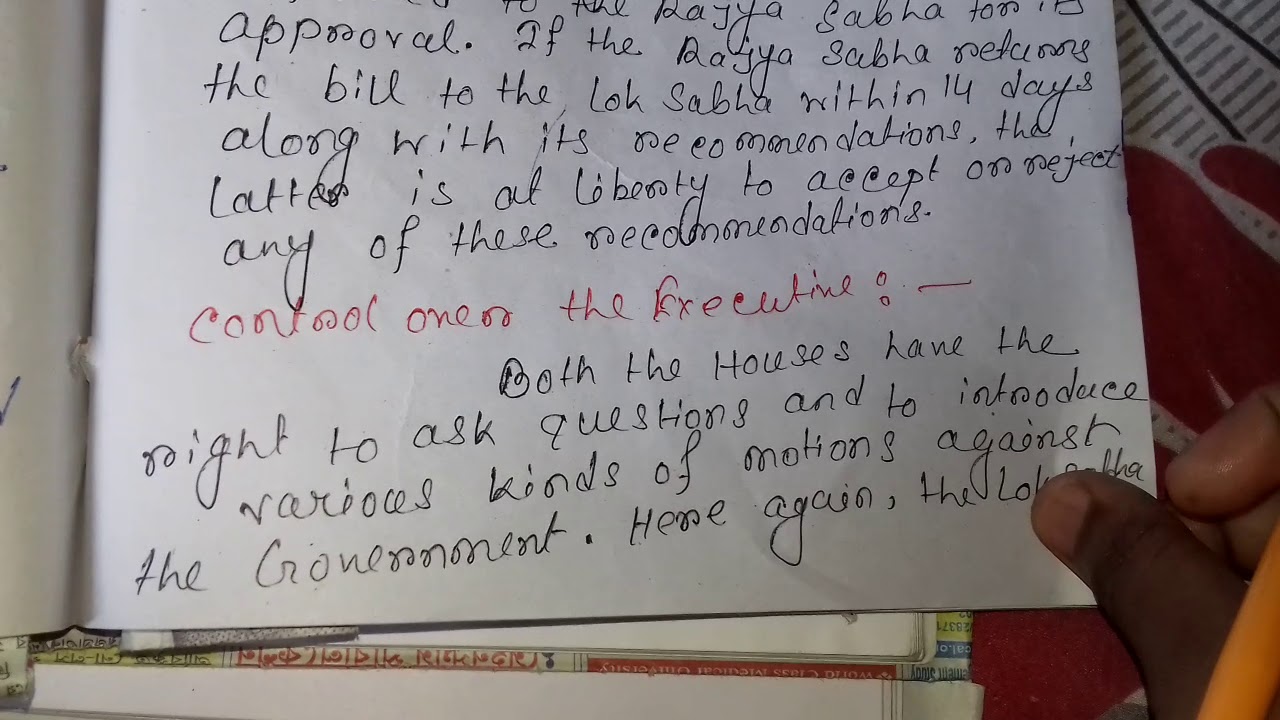 to the Rajya Sabha for its
approval. If the Rajya Sabha returns
the bill to the Lok Sabha within 14 days
along with its recommendations, the
latter is at liberty to accept or reject
any of these recommendations.
Control over the Executive : —
Both the Houses have the
right to ask questions and to introduce
various kinds of motions against
the Government. Here again, the Lok Sabha
World Class Medical University
28371